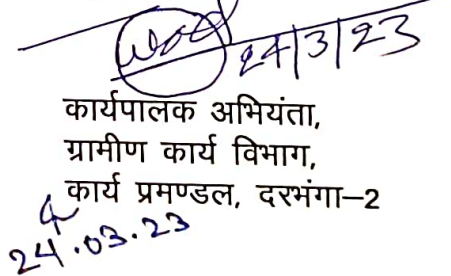 24/3/23
कार्यपालक अभियंता,
ग्रामीण कार्य विभाग,
कार्य प्रमण्डल, दरभंगा–2
24.03.23